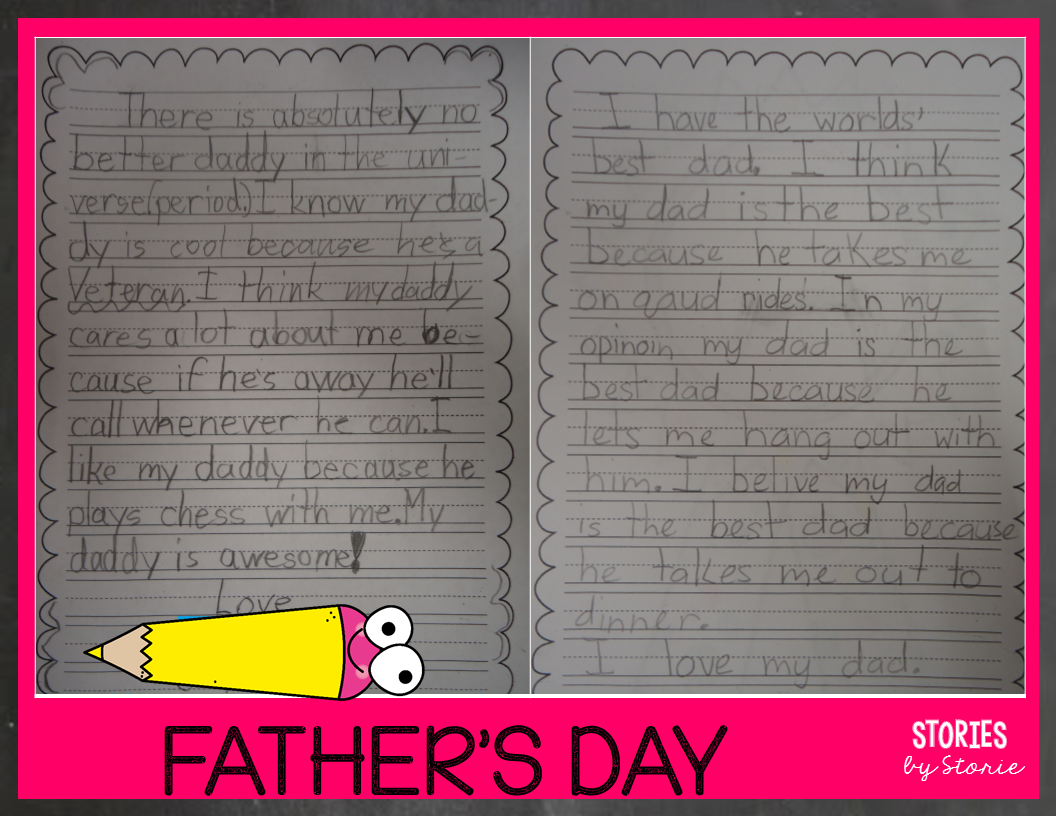 There is absolutely no
better daddy in the uni-
verse(period.)I know my dad-
dy is cool because he's a
Veteran. I think my daddy
cares a lot about me be-
cause if he's away he'll
call whenever he can. I
like my daddy because he
plays chess with me. My
daddy is awesome!
Love
I have the worlds'
best dad. I think
my dad is the best
because he takes me
on qaud rides. In my
opinoin my dad is the
best dad because he
lets me hang out with
him. I belive my dad
is the best dad because
he takes me out to
dinner.
I love my dad.
FATHER'S DAY
STORIES
by Storie